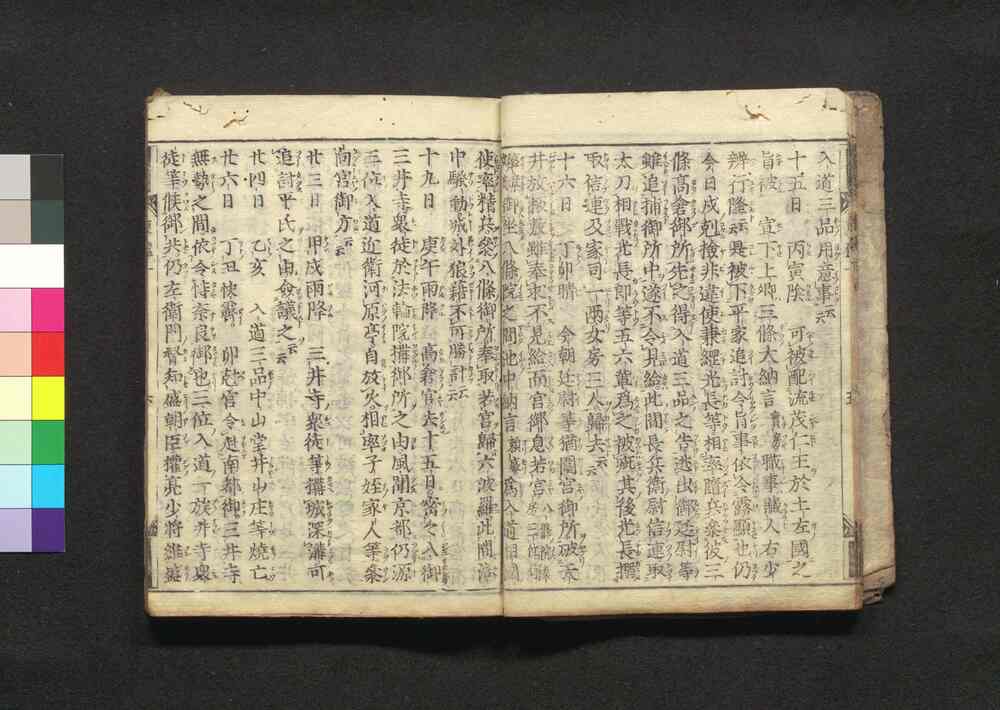 入道三品用意事云云
十五日 丙寅陰 可被配流茂仁王於土左國之
旨被 宣下上卿三條大納言實房職事蔵人右少
辨行隆云云是被下平家追討令旨事依令露顯也仍
今日戌剋檢非違使兼綱光長等相率隨兵參彼三
條高倉御所先之得入道三品之告逃出御廷尉等
雖追捕御所中遂不令見給此間長兵衛尉信連取
太刀相戰光長郎等五六輩爲之被疵其後光長搦
取信連及家司一兩女房三人歸去云云
十六日 丁卯晴 今朝廷尉等猶圍宮御所破天
井放板敷雖奉求不見給而宮御息若宮八條院
御坐八條院之間池中納言頼盛爲入道相國
使率精兵參八條御所奉取若宮歸六波羅此間洛
中騒動城外狼藉不可勝計云云
十九日 庚午雨降 高倉宮去十五日密々入御
三井寺衆徒於法輪院搆御所之由風聞京都仍源
三位入道近衛河原亭自放火相率子姪家人等參
向宮御方云云
廿三日 甲戌雨降 三井寺衆徒等搆城深溝可
追討平氏之由僉議之云云
廿四日 乙亥 入道三品中山堂并山庄等燒亡
廿六日 丁丑快霽 卯尅宮令赴南都御三井寺
無勢之間依令恃奈良御也三位入道一族并寺衆
徒等候御共仍左衛門督知盛朝臣權亮少將維盛